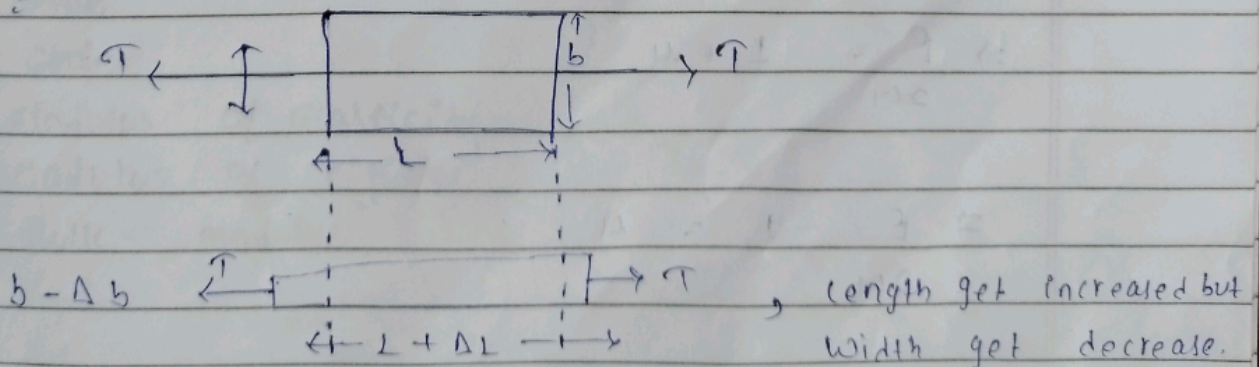 T b T
L
b - Δb T T , Length get increased but
L + ΔL width get decrease.